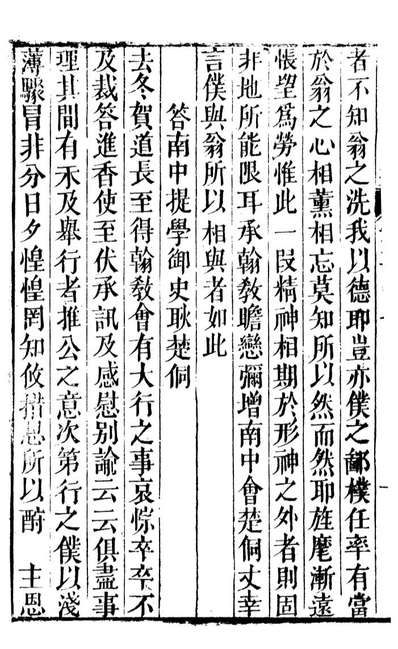 者不知翁之洗我以德耶豈亦僕之鄙樸任率有當
於翁之心相薰相忘莫知所以然而然耶旌麾漸遠
悵望爲勞惟此一段精神相期於形神之外者則固
非地所能限耳承翰敎瞻戀彌增南中會楚侗丈幸
言僕與翁所以相與者如此
答南中提學御史耿楚侗
去冬賀道長至得翰敎會有大行之事哀悰卒卒不
及裁答進香使至伏承訊及感慰别諭云云俱盡事
理其間有未及舉行者推公之意次第行之僕以淺
薄驟冒非分日夕惶惶罔知攸措思所以酧　主恩